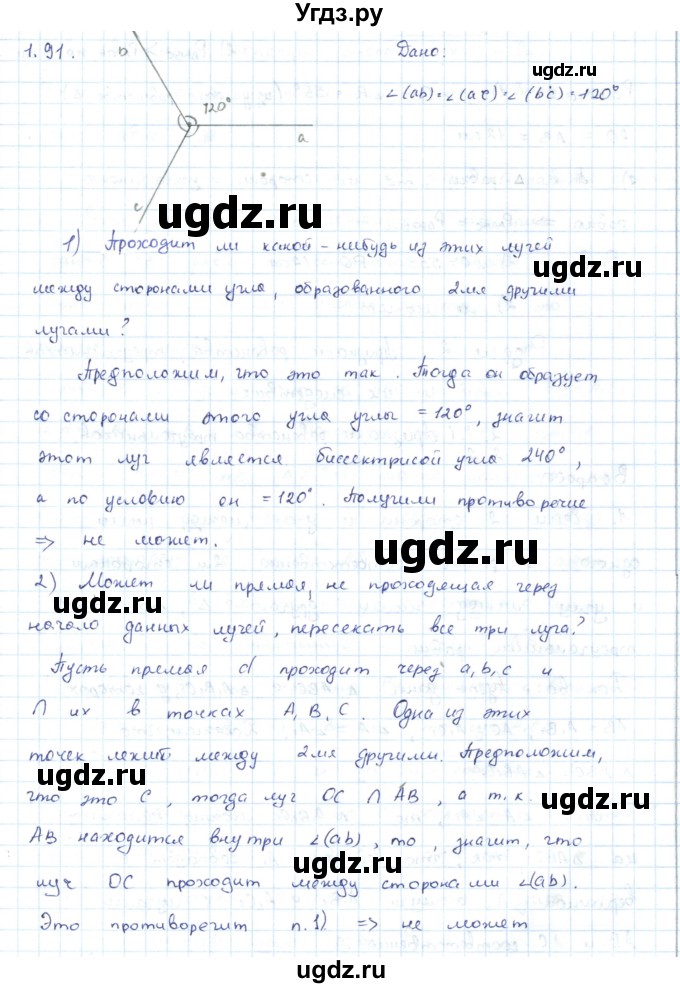 Угдз.ру
1.91.
b
Дано:
ugdz.ru
120°
∠(ab)=∠(ac)=∠(bc)=120°
a
c
ugdz.ru
1) Проходит ли какой-нибудь из этих лучей
ugdz.ru
между сторонами угла, образованного 2мя другими
лучами?
Предположим, что это так. Тогда он образует
со сторонами этого угла углы =120°, значит
этот луч является биссектрисой угла 240°,
а по условию он =120°. Получили противоречие
=> не может.
ugdz.ru
2) Может ли прямая, не проходящая через
ugdz.ru
начало данных лучей, пересекать все три луча?
Пусть прямая d проходит через a, b, c и
∩ их в точках A, B, C. Одна из этих
точек лежит между 2мя другими. Предположим,
ugdz.ru
что это C, тогда луч OC ∩ AB, а т.к.
ugdz.ru
AB находится внутри ∠(ab), то, значит, что
ugdz.ru
луч OC проходит между сторонами ∠(ab).
Это противоречит п.1) => не может
ugdz.ru